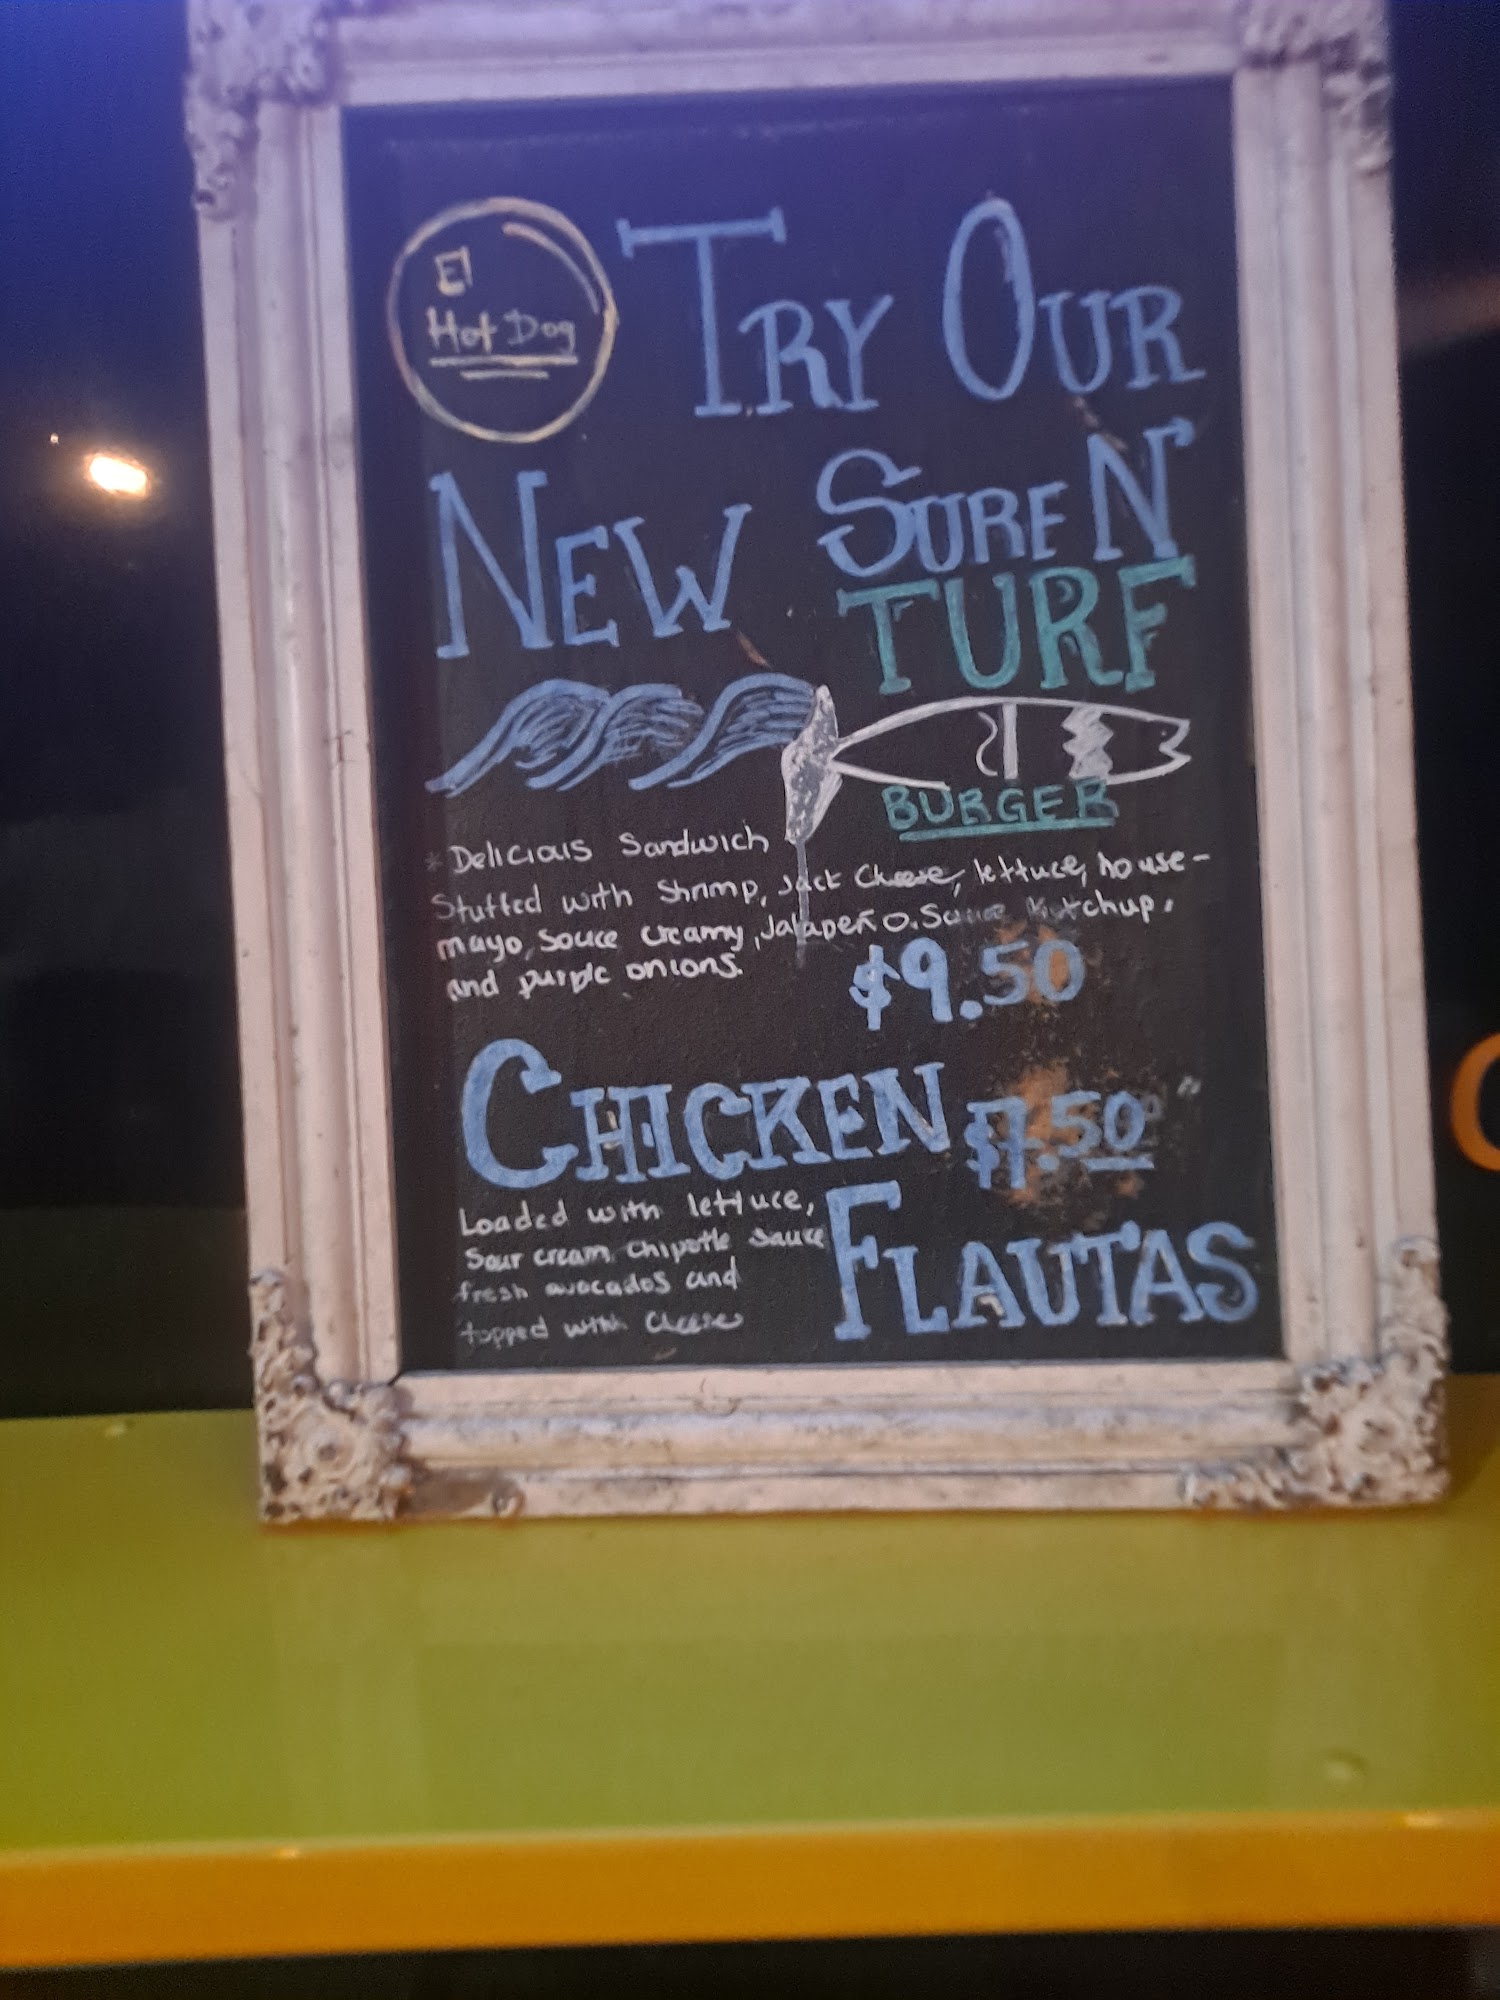 El
Hot Dog
TRY OUR
NEW SURF N'
TURF
BURGER
*Delicious Sandwich
Stuffed with Shrimp, Jack Cheese, lettuce, house-
mayo, souce creamy, Jalapeño. Sauce Ketchup,
and purple onions.
$9.50
CHICKEN $7.50
FLAUTAS
Loaded with lettuce,
Sour cream, chipotle sauce
fresh avocados and
topped with cheese